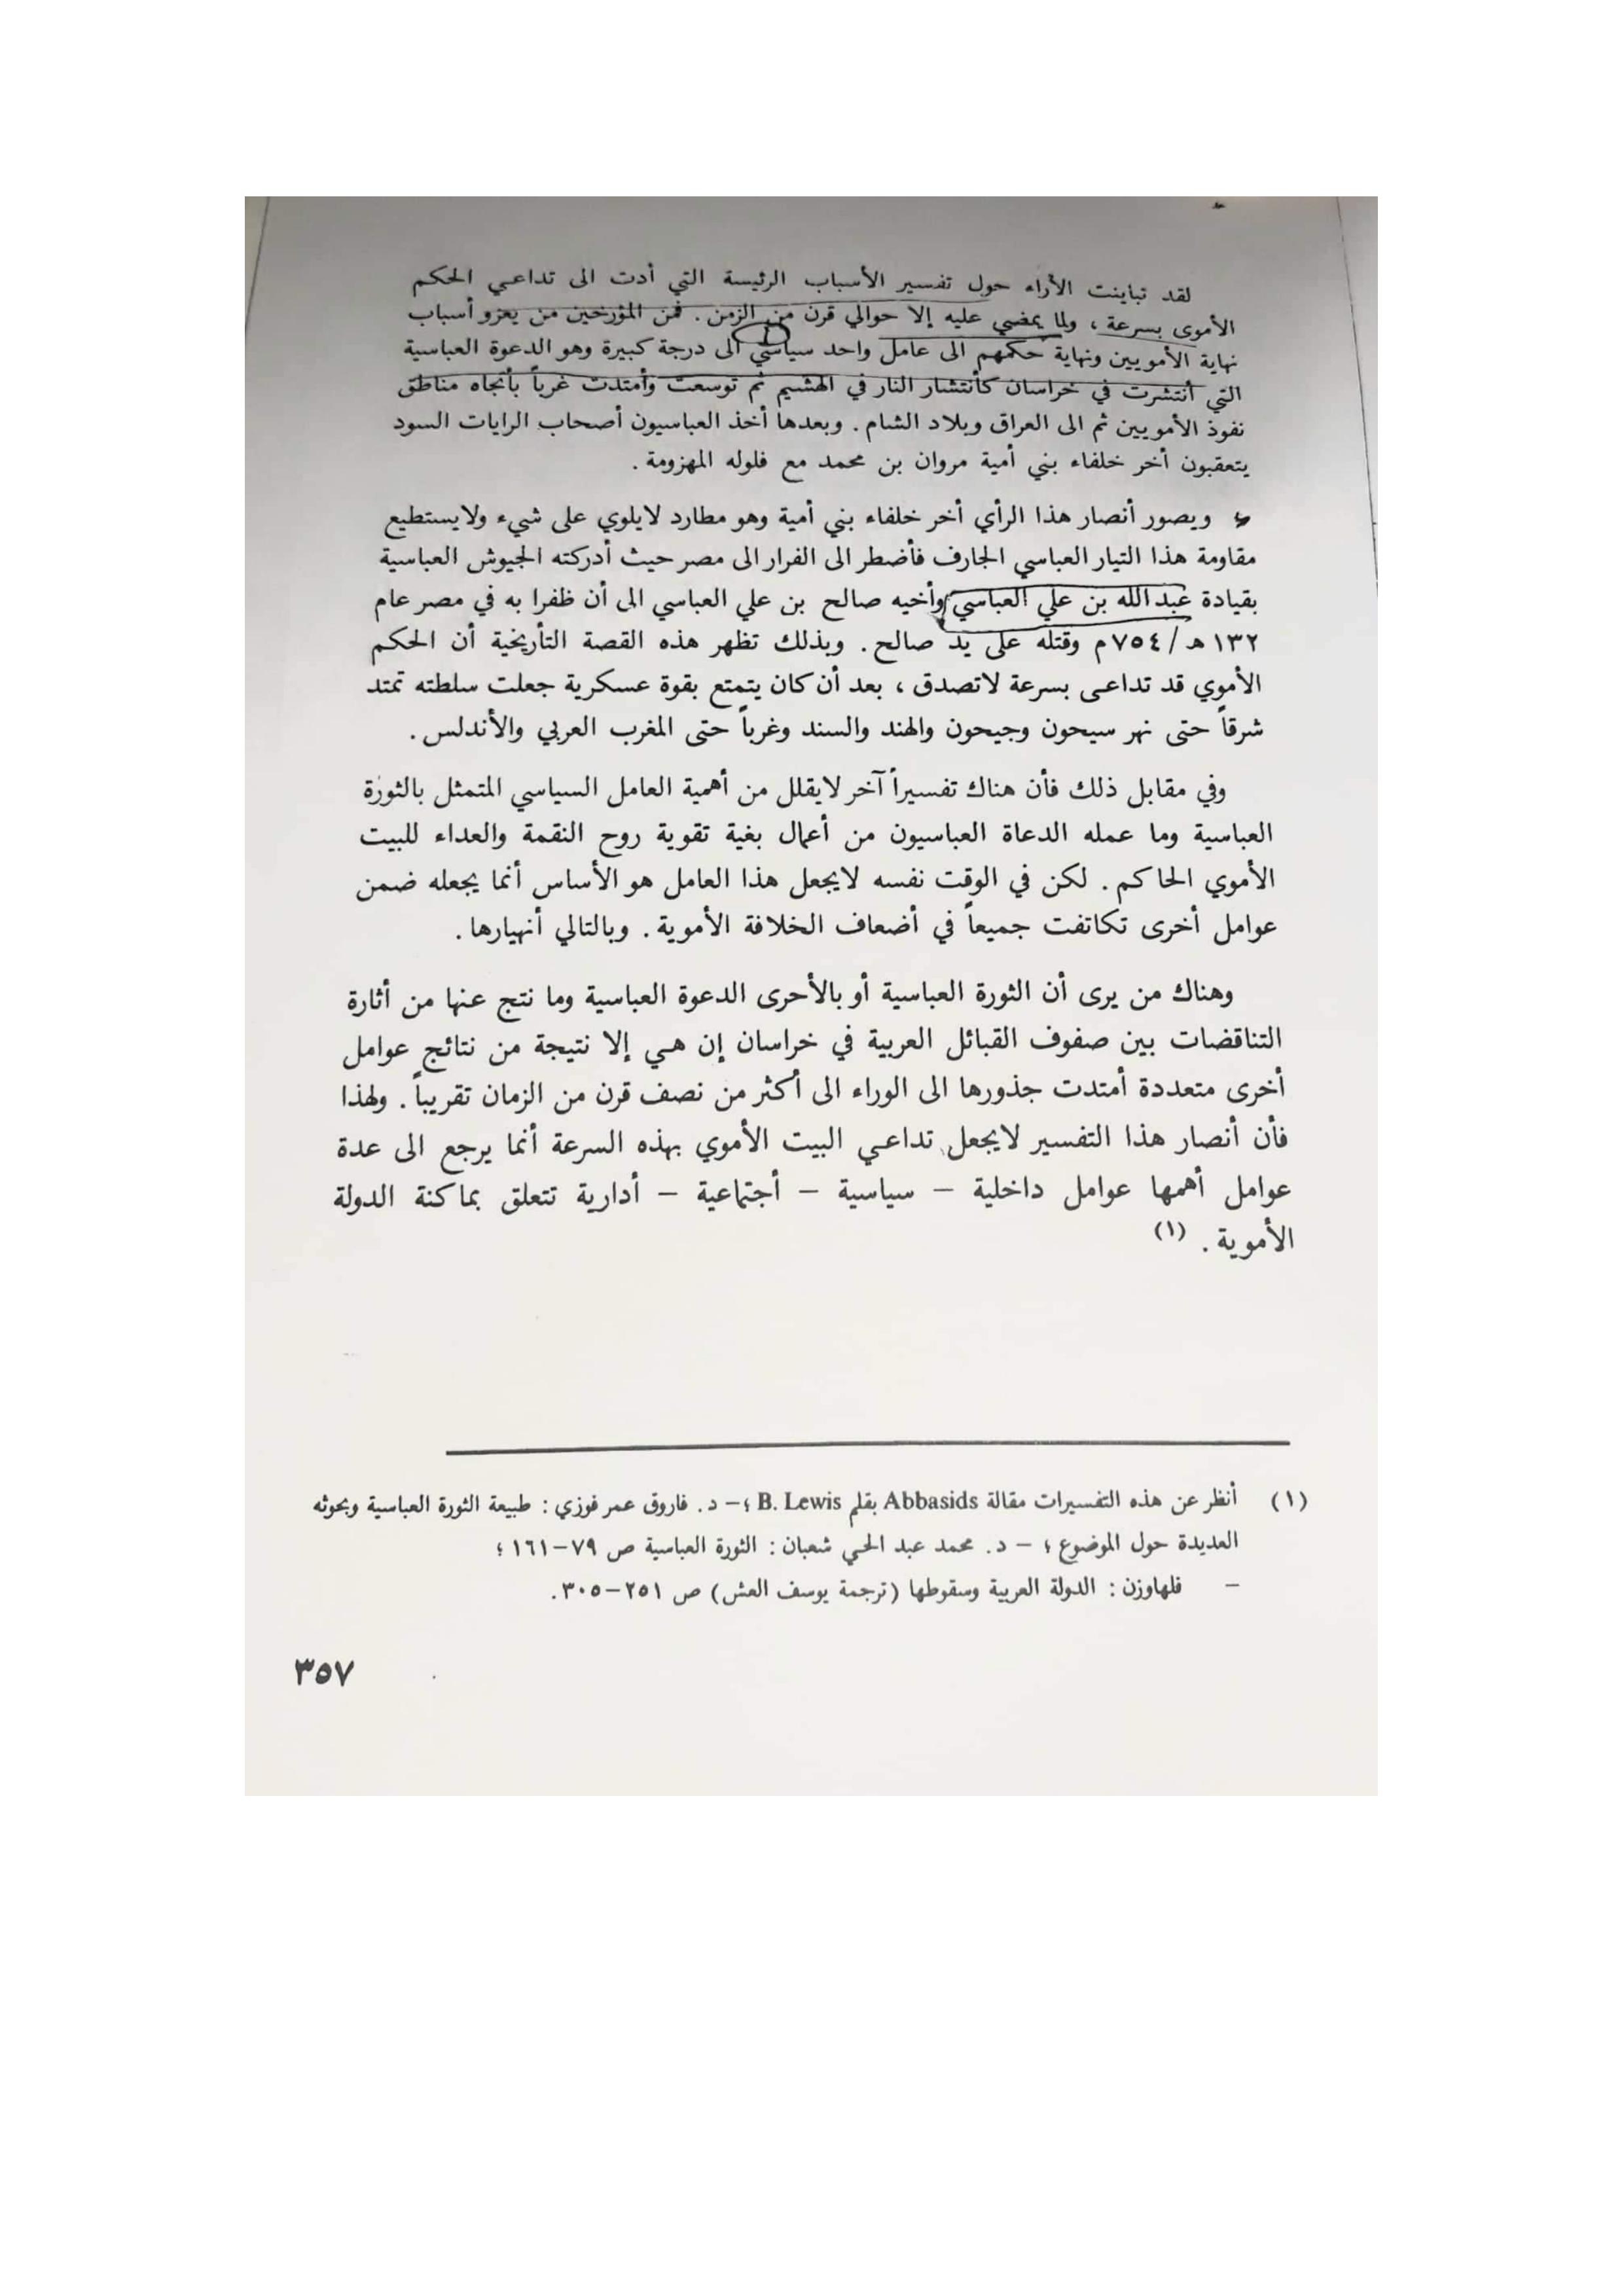 لقد تباينت الأراء حول تفسير الأسباب الرئيسة التي أدت الى تداعي الحكم
الأموي بسرعة ، ولما يمضي عليه إلا حوالي قرن من الزمن . فمن المؤرخين من يعزو أسباب
نهاية الأمويين ونهاية حكمهم الى عامل واحد سياسي الى درجة كبيرة وهو الدعوة العباسية
التي أنتشرت في خراسان كأنتشار النار في الهشيم ثم توسعت وأمتدت غرباً بأتجاه مناطق
نفوذ الأمويين ثم الى العراق وبلاد الشام . وبعدها أخذ العباسيون أصحاب الرايات السود
يتعقبون أخر خلفاء بني أمية مروان بن محمد مع فلوله المهزومة .
ويصور أنصار هذا الرأي أخر خلفاء بني أمية وهو مطارد لايلوي على شيء ولايستطيع
مقاومة هذا التيار العباسي الجارف فأضطر الى الفرار الى مصر حيث أدركته الجيوش العباسية
بقيادة عبد الله بن علي العباسي وأخيه صالح بن علي العباسي الى أن ظفرا به في مصر عام
١٣٢ هـ / ٧٥٤ م وقتله على يد صالح . وبذلك تظهر هذه القصة التأريخية أن الحكم
الأموي قد تداعى بسرعة لاتصدق ، بعد أن كان يتمتع بقوة عسكرية جعلت سلطته تمتد
شرقاً حتى نهر سيحون وجيحون والهند والسند وغرباً حتى المغرب العربي والأندلس .
وفي مقابل ذلك فأن هناك تفسيراً آخر لايقلل من أهمية العامل السياسي المتمثل بالثورة
العباسية وما عمله الدعاة العباسيون من أعمال بغية تقوية روح النقمة والعداء للبيت
الأموي الحاكم . لكن في الوقت نفسه لايجعل هذا العامل هو الأساس أنما يجعله ضمن
عوامل أخرى تكاتفت جميعاً في أضعاف الخلافة الأموية . وبالتالي أنهيارها .
وهناك من يرى أن الثورة العباسية أو بالأحرى الدعوة العباسية وما نتج عنها من أثارة
التناقضات بين صفوف القبائل العربية في خراسان إن هي إلا نتيجة من نتائج عوامل
أخرى متعددة أمتدت جذورها الى الوراء الى أكثر من نصف قرن من الزمان تقريباً . ولهذا
فأن أنصار هذا التفسير لايجعل تداعي البيت الأموي بهذه السرعة أنما يرجع الى عدة
عوامل أهمها عوامل داخلية – سياسية – أجتماعية – أدارية تتعلق بماكنة الدولة
الأموية . (١)
(١) أنظر عن هذه التفسيرات مقالة Abbasids بقلم B. Lewis ؛ – د. فاروق عمر فوزي : طبيعة الثورة العباسية وبحوثه
العديدة حول الموضوع ؛ – د. محمد عبد الحي شعبان : الثورة العباسية ص ٧٩–١٦١ ؛
– فلهاوزن : الدولة العربية وسقوطها (ترجمة يوسف العش) ص ٢٥١–٣٠٥.
٣٥٧